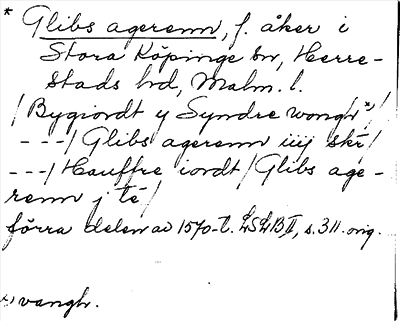 * Glibs agerenn, f. åker i
Stora Köpinge sn, Herre-
stads hd, Malm. l.
/Bygiordt y Syndre wongh x)/
---/Glibs agerenn iiij skr/
---/Hauffre iordt/Glibs age-
renn j te/
förra delen av 1570-t. LSLB II, s. 311. orig.
x) vangh.